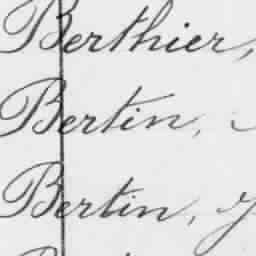 Berthier,
Bertin,
Bertin,